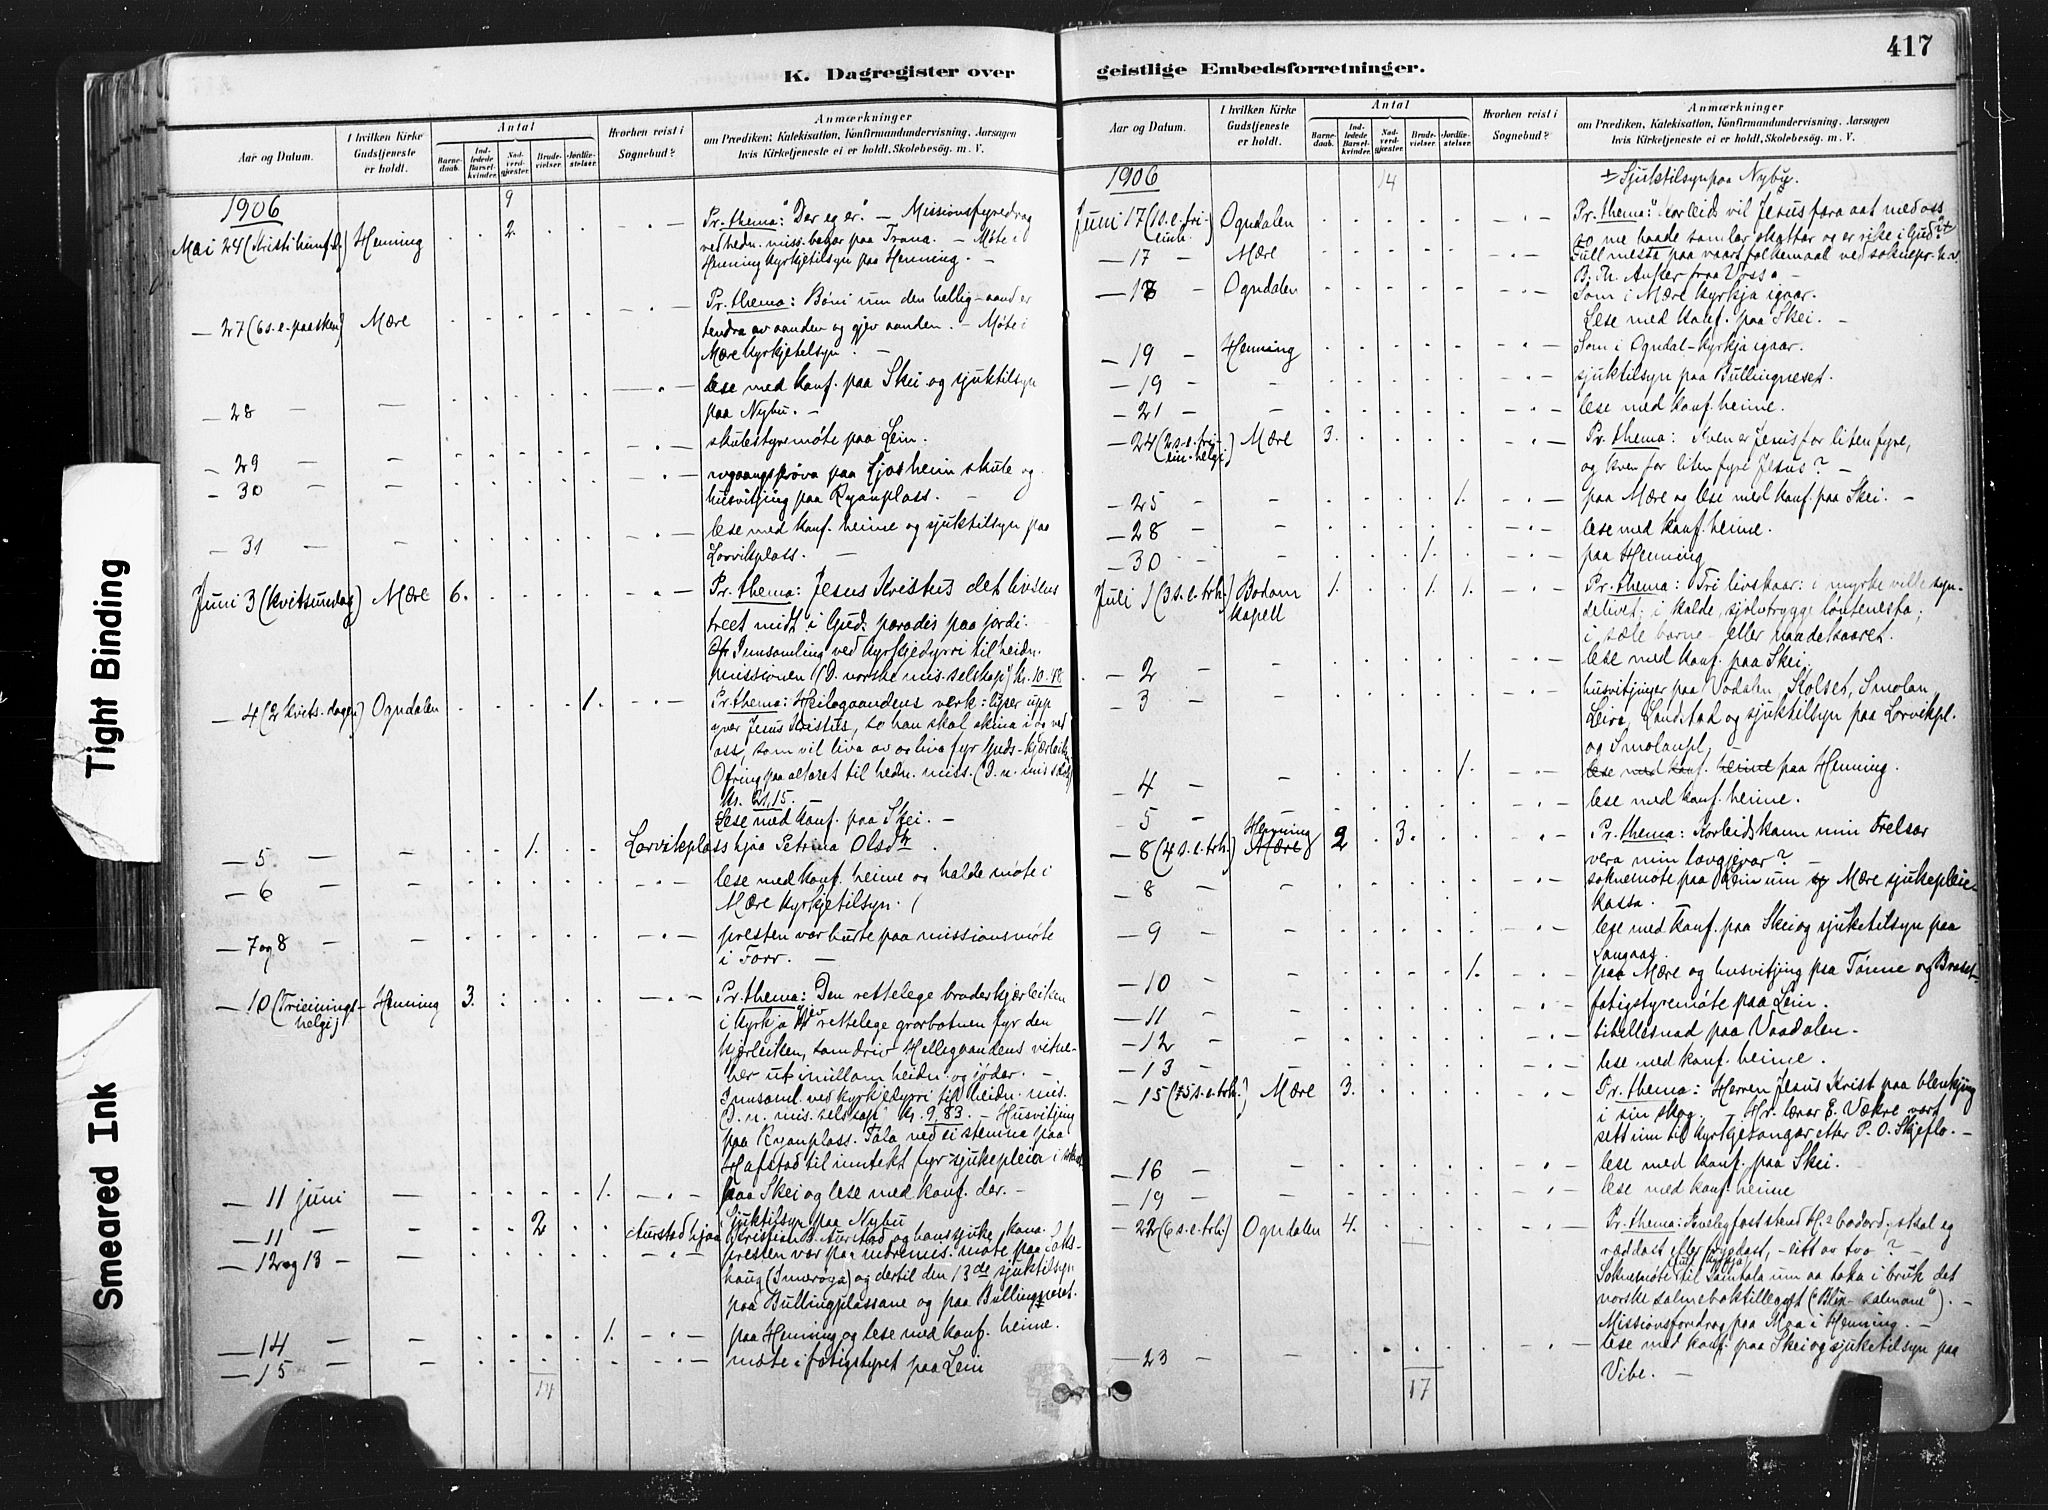 417
K. Dagregister over geistlige Embedsforretninger.
Aar og Datum.
I hvilken Kirke Gudstjeneste er holdt.
Antal
Barnedaab.
Indledede Barselkvinder.
Nadverdgjæster.
Brudevielser.
Jordfæstelser.
Hvorhen reist i Sognebud?
Anmærkninger
om Prædiken, Katekisation, Konfirmandundervisning, Aarsagen
hvis Kirketjeneste ei er holdt, Skolebesøg. m. V.
1906
9
Mai 24 (Kristi himf.d.) Henning . . 2. . . - . - Pr. thema: "Der eg er". - Missionsfyredrag
ved hedn. miss. bøgar paa Trana. - Møte i
Henning Kyrkjetilsyn paa Henning. -
- 27 (6 s. e. paasken) Mære . . . . . - . - Pr. thema: Bøni um den hellig-aand er
tendra av aanden og gjev aanden. - Møte i
Mære Kyrkjetilsyn. -
- 28 - - . . . . . - . - lese med konf. paa Skei og sjuktilsyn
paa Nybu. -
- 29 - - . . . . . - . - skulestyremøte paa Lein.
- 30 - - . . . . . - . - paa Ljosheim skule og
husvitjing paa Ryanplass. -
- 31 - - . . . . . - . - lese med konf. heime og sjuktilsyn paa
Lorvikplass. -
Juni 3 (kvitsundag) Mære 6. . . . . - . - Pr. thema: Jesus Kristus det livsens
treet midt i Guds paradis paa jordi.
Innsamling ved kyrkjedyrri til heidn.
missionen (D. norske mis. selskap) kr. 10.48
- 4 (2 kvits.-dagen) Ogndalen . . . . 1. - . - Pr. thema: Heilagaandens verk: lyser upp
yver Jesus Kristus, so han skal skina i os ved
oss, som vil liva av og liva fyr Guds-kjærleiken
Ofring paa altaret til hedn. miss. (D. n. mis selsk.)
kr. 21,15.
Lese med konf. paa Skei. -
- 5 - - . . . 1. . - Lorvikplass hjaa Petrina Olsdtr.
- 6 - - . . . . . - . - lese med konf. heime og halde møte i
Mære Kyrkjetilsyn.
- 7 og 8 - - . . . . . - . - presten var burte paa missionsmøte
i Forr. -
- 10 (Trieinings-helgi) Henning 3. . . . . - . - Pr. thema: Den rettelege broderkjærleiken
i kyrkja er rettelege grorbotnen fyr den
kjærleiken, som driv Helligaandens vitne-
her ut imillom heidn. og jødar. -
Innsaml. ved kyrkjedyrri til heidn. mis.
(D. n. mis. selskap) kr. 9,83. - Husvitjing
paa Ryanplass. Tala ved ei stemna paa
Hafstad til inntekt fyr sjukepleia i
- 11 juni - . . . . 1. - . - paa Skei og lese med konf. der. -
Sjuktilsyn paa Nybu
- 11 - - . . . 2 . . Aurstad hjaa Kristian B. Aurstad og hans sjuke kona.
- 12 og 13 - - . . . . . - . - presten var paa indremis. møte paa Saks-
haug (Inderøya) og dertil den 13de sjuktilsyn
paa Bullingplassane og paa Bullingneset.
- 14 - - . . . . 1. - . - paa Henning og lese med konf. heime.
- 15 - - . . . . . - . - møte i fatigstyret paa Lein
14
Aar og Datum.
I hvilken Kirke Gudstjeneste er holdt.
Antal
Barnedaab.
Indledede Barselkvinder.
Nadverdgjæster.
Brudevielser.
Jordfæstelser.
Hvorhen reist i Sognebud?
Anmærkninger
om Prædiken, Katekisation, Konfirmandundervisning, Aarsagen
hvis Kirketjeneste ei er holdt, Skolebesøg. m. V.
1906
14
Sjuktilsyn paa Nybu.
Juni 17 (1 s. e. tri-einh.) Ogndalen . . . . . - . - Pr. thema: "Korleids vil Jesus fara aat med oss
so me baade samlar skattar og er rike i Gud"?
- 17 - Mære . . . . . - . - Full messa paa vaart folkemaal ved soknepr. h.v.
B. Th. Anker fraa Voss. -
- 18 - Ogndalen . . . . . - . - Som i Mære kyrkja igaar.
Lese med konf. paa Skei. -
- 19 - Henning . . . . . - . - Som i Ogndal-kyrkja igaar.
- 19 - - . . . . . - . - sjuktilsyn paa Bullingneset.
- 21 - - . . . . . - . - lese med konf. heime.
- 24 (2 s. e. tri-ein.helgi) Mære 3. . . . . - . - Pr. thema: Kven er Jesus for liten fyre,
og kven for liten fyre Jesus? -
- 25 - - . . . . 1. - . - paa Mære og lese med konf. paa Skei. -
- 28 - - . . . . . - . - lese med konf. heime.
- 30 - - . . . 1. . - . - paa Henning
Juli 1 (3 s. e. trh.) Bodom kapell 1. . . 1. 1. - . - Pr. thema: Tri livskaar: i myrke ville syn-
delivet; i kalde, sjølvtrygge løntenesta;
i sæle barne- eller naadekaaret.
- 2 - - . . . . . - . - lese med konf. paa Skei.
- 3 - - . . . . . - . - husvitjingar paa Vodalen, Kolset, Smolan,
Leira, Landstad og sjuktilsyn paa Lorvikpl.
og Smolanpl.
- 4 - - . . . . 1. - . - lese med konf. heime paa Henning.
- 5 - - . . . . . - . - lese med konf. heime.
- 8 (4 s. e. trh.) Henning Mære 2 . 3. . . - . - Pr. thema: Korleids kann min Frelsar
vera min lovgjevar? -
- 8 - - . . . . . - . - soknemøte paa Lein um Mære sjukepleie-
kassa.
- 9 - - . . . . . - . - lese med konf. paa Skei og sjuketilsyn paa
Langaas.
- 10 - - . . . . 1. - . - paa Mære og husvitjing paa Tønne og Braset-
- 11 - - . . . . . - . - fatigstyremøte paa Lein.
- 12 - - . . . . . - . - paa Vaadalen.
- 13 - - . . . . . - . - lese med konf. heime.
- 15 (5 s. e. trh.) Mære 3. . . . . - . - Pr. thema: Herren Jesus Krist paa
i sin skog. - Hr. lærar E. Vækre vart
sett inn til kyrkjesongar etter P. O. Skjeflo. -
- 16 - - . . . . . - . - lese med konf. paa Skei.
- 19 - - . . . . . - . - lese med konf. heime
- 22 (6 s. e. trh.) Ogndalen 4. . . . . - . - Pr. thema: bodord; skal eg
ræddast eller trygdast, - eitt av tvo? -
Soknemøte til Samtala um aa taka i bruk det
norske salmeboktillegget ("Blix-salmane"). -
Missionsforedrag paa Moa i Henning. -
- 23 - - . . . . . - . - lese med konf. paa Skei og sjuketilsyn paa
Vibe. -
17
Tight Binding
Smeared Ink